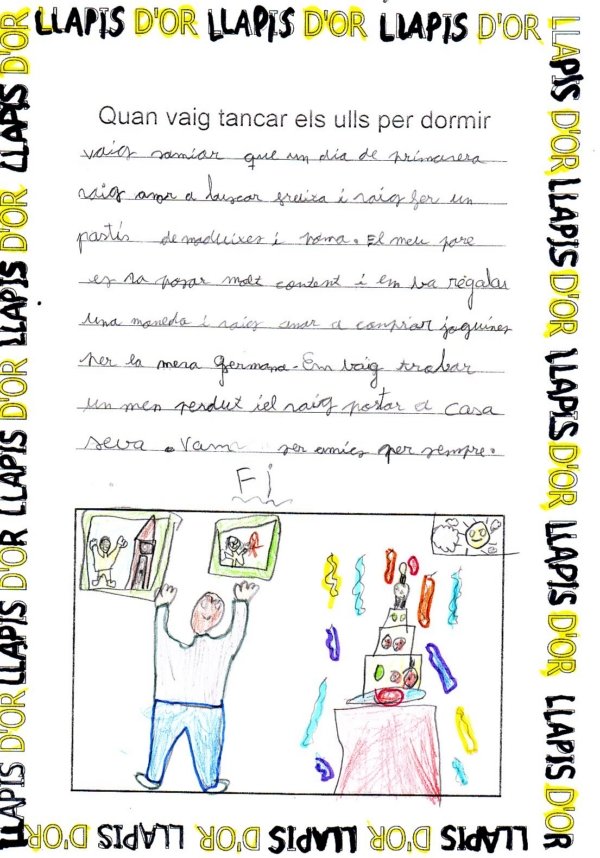 LLAPIS D'OR LLAPIS D'OR LLAPIS D'OR
Quan vaig tancar els ulls per dormir
vaig samiar que un dia de primavera
vaig anar a buscar freixa i vaig fer un
pastís de maduixes i poma. El meu pare
es va posar molt content i em va regalar
una moneda i vaig anar a comprar joguines
per la meva germana. Em vaig trobar
un nen perdut i el vaig portar a casa
seva. Vam ser amics per sempre.
Fi
LLAPIS D'OR LLAPIS D'OR LLAPIS D'OR LLAPIS D'OR
LLAPIS D'OR LLAPIS D'OR LLAPIS D'OR
LLAPIS D'OR LLAPIS D'OR LLAPIS D'OR LLAPIS D'OR